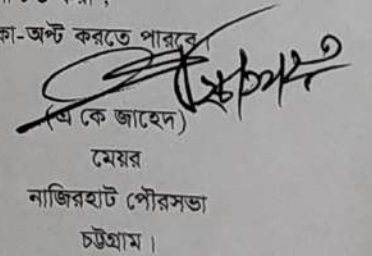 কো-অপ্ট করতে পারবে।
(এ কে জাহেদ)
মেয়র
নাজিরহাট পৌরসভা
চট্টগ্রাম।